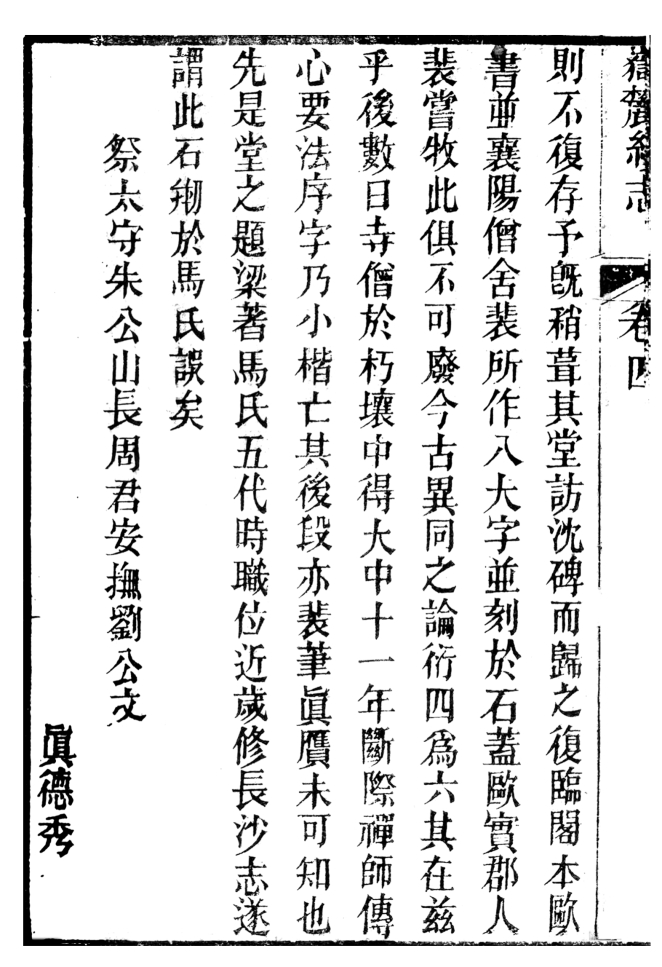 嶽麓續志
卷四
則不復存予旣稍葺其堂訪沈碑而歸之復臨閣本歐
書並襄陽僧舍裴所作八大字並刻於石蓋歐實郡人
裴嘗牧此俱不可廢今古異同之論衍四爲六其在兹
乎後數日寺僧於朽壤中得大中十一年斷際禪師傳
心要法序字乃小楷亡其後段亦裴筆眞贋未可知也
先是堂之題梁著馬氏五代時職位近歲修長沙志遂
謂此石剏於馬氏誤矣
祭太守朱公山長周君安撫劉公文
眞德秀